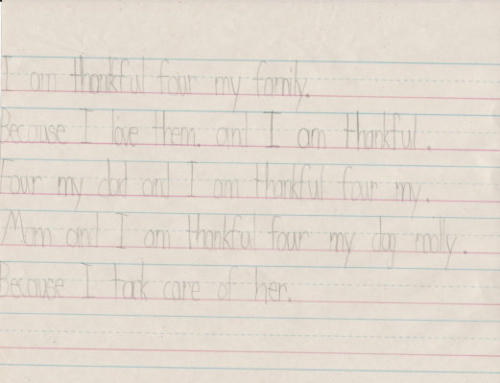 I am thankful four my family.
Because I love them. and I am thankful.
Four my dad and I am thankful four my.
Mom and I am thankful four my dog molly.
Because I take care of her.